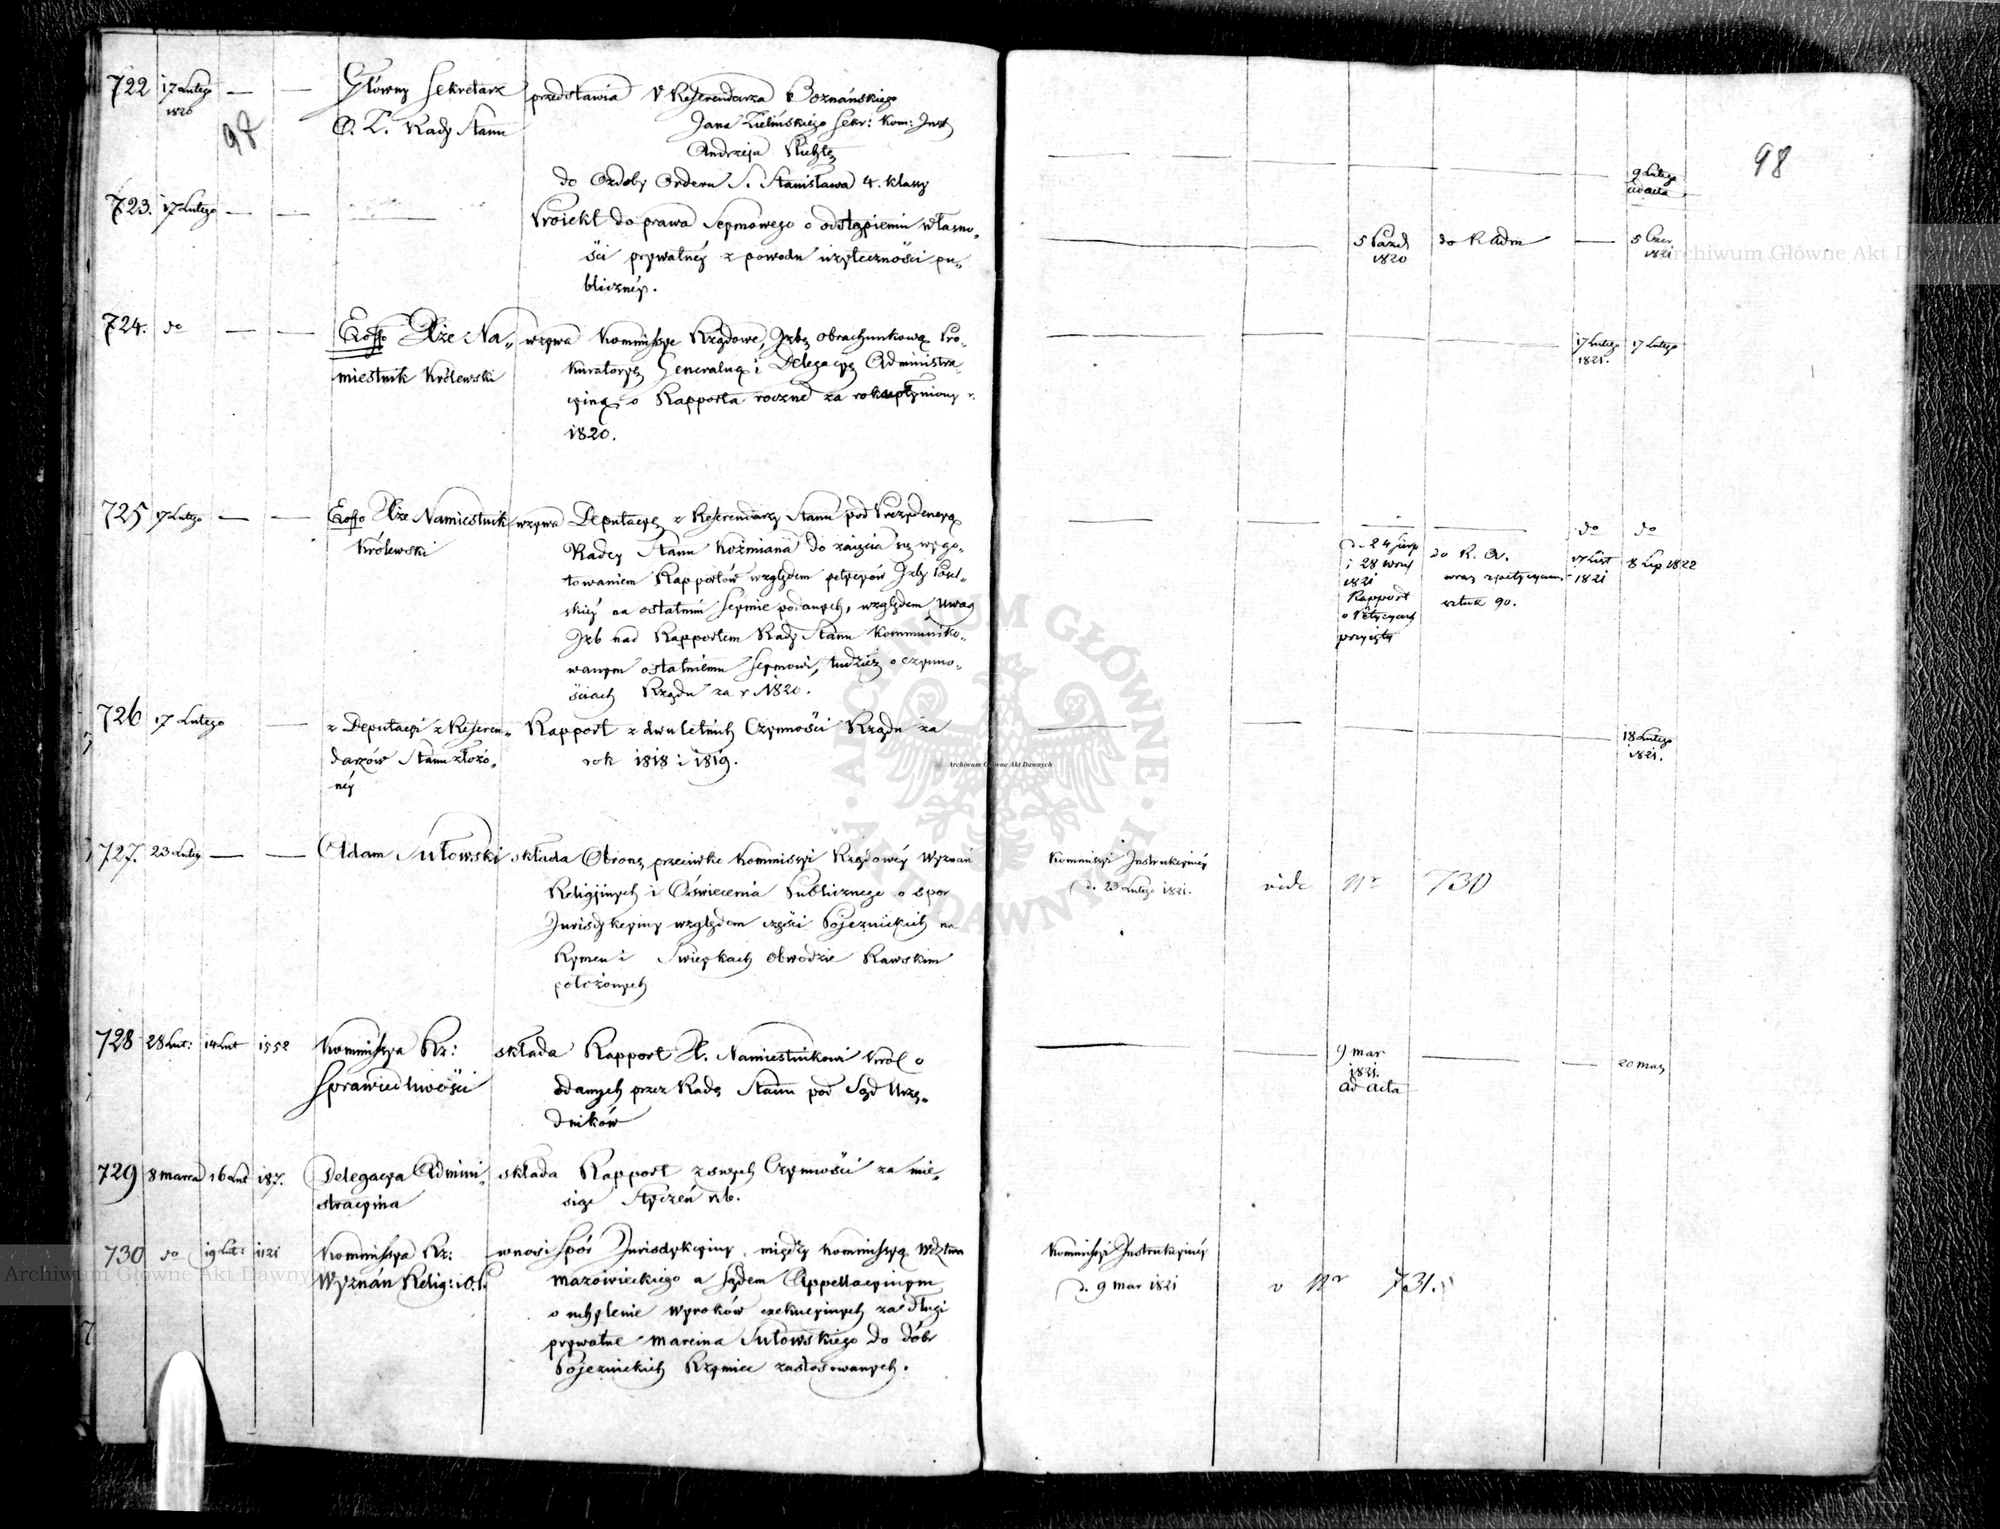 722 17 Lutego — — Główny Sekretarz przedstawia P Referendarza Poznańskiego
1820
O. Z. Rady Stanu Jana Zielińskiego Sekr: Kom:
98
Andrzeja
do Ozdoby Orderu S. Stanisława 4. klassy
98
9 Lutego
ad acta
723. 17 Lutego — — — Proiekt do prawa Seymowego o odstąpieniu własno-
ści prywatnéy z powodu użyteczności pu-
blicznéy.
5 Paźd do R Adm — 5 Czer
1820 1821
724. do — — Xże Na- wzywa Kommissye Rządowe, Izbę Obrachunkową Pro-
miestnik Królewski kuratoryę Generalną i Delegacyę Administra-
cyiną o Rapporta roczne za rok upłyniony r.
1820.
17 Lutego 17 Lutego
1821.
725 17 Lutego — — Xże Namiestnik wzywa Deputacyę z Referendarzy Stanu pod Prezydencyą
Królewski Radcy Stanu Koźmiana do zaięcia się wygo-
towaniem Rapportów względem petycyów Izby Posel-
skiéy na ostatnim Seymie podanych, względem uwag
Izb nad Rapportem Rady Stanu kommuniko-
wanym ostatniemu Seymowi, tudzież o czynno-
ściach Rządu za r 1820.
do do
d. 24 Sierp do R. A. 17 List 8 Lip 1822
i 28 wrz wraz z petycyami 1821
1821 sztuk 90.
Rapport
o Petycyach
przyięty
726 17 Lutego — z Deputacyi z Referen- Rapport z dwuletnich Czynności Rządu za
darzów Stanu złożo- rok 1818 i 1819.
néy
18 Lutego
1821.
727. 23 Lutego — — Adam Sułowski składa Obronę przeciwko Kommissyi Rządowéy Wyznań
Religijnych i Oświecenia Publicznego o spor
Jurisdykcyiny względem części Pojeznickich na
Rymcu i Świeykach Obwodzie Rawskim
położonych
Kommissyi Instrukcyinéy
d. 23 Lutego 1821. vide Nr 730
728 28 Lut: 14 Lut 1552 Kommissya Rz: składa Rapport X. Namiestnikowi Król o
Sprawiedliwości oddanych przez Radę Stanu pod Sąd Urzę-
dników
9 mar
1821.
ad acta
20 mar
729 8 marca 16 Lut 187. Delegacya Admini- składa Rapport z swych Czynności za mie-
stracyina siąc Styczeń r. b.
730 do 19 Lut: 1121 Kommissya Rz: wnosi Spór Jurisdykcyiny między Kommissyą Wdztwa
Wyznań Relig: i O. P. Mazowieckiego a Sądem Appellacyinym
o uchylenie wyroków exekucyinych za długi
prywatne Marcina Sułowskiego do dóbr
Pojeznickich Rzymiec zastosowanych.
Kommissyi Instrukcyinéy
d. 9 mar 1821 v Nr 731.
Archiwum Główne Akt Dawnych
ARCHIWUM GŁÓWNE AKT DAWNYCH